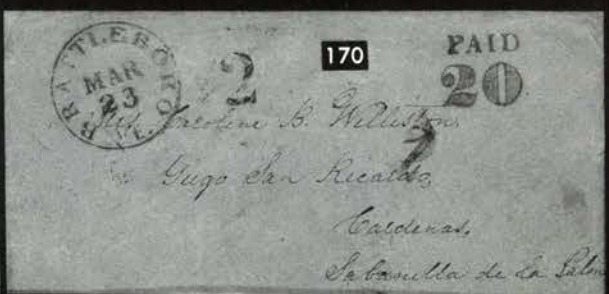 BRATTLEBORO Vt.
MAR
23
2
170
PAID
20
Caroline B. Williston,
2
San Ricardo,
Cardenas,
Sabanilla de la